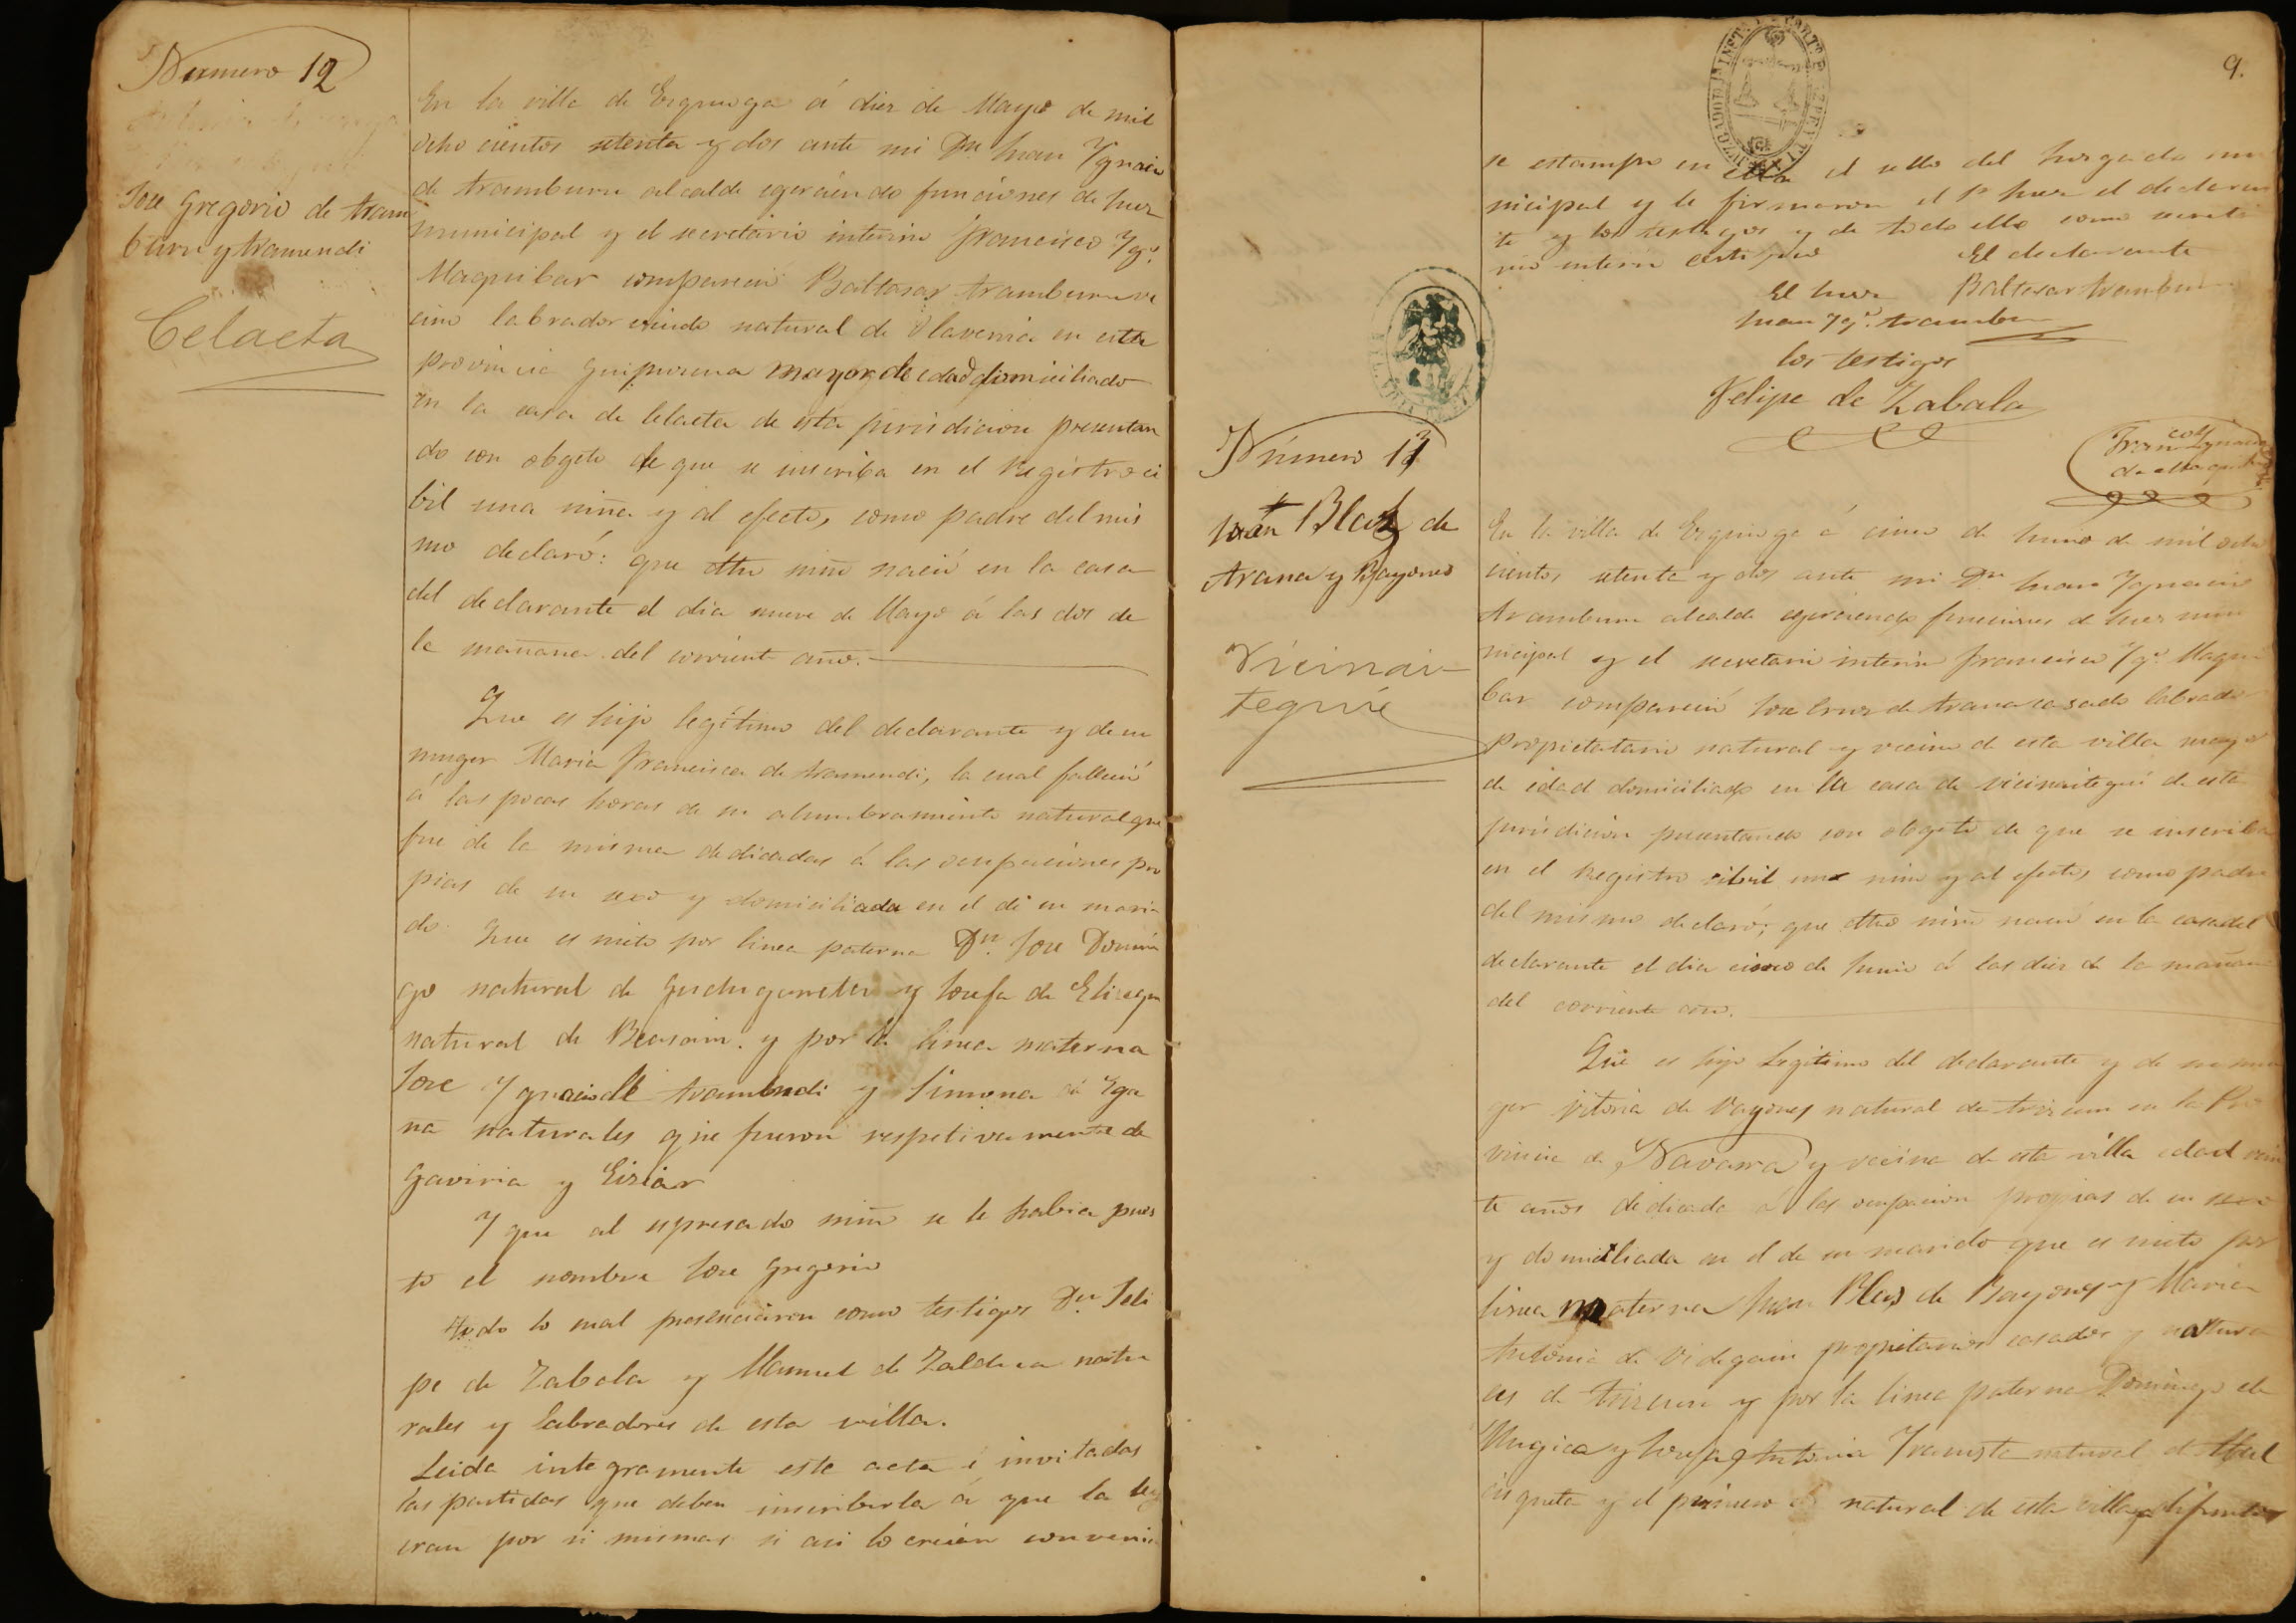 Numero 12
Jose Gregorio de Aram
buru y Aramendi
Celaeta
En la villa de Ezquioga á diez de Mayo de mil
ocho cientos setenta y dos ante mi Dn Juan Ygnacio
de Aramburu alcalde egerciendo funciones de Juez
municipal y el secretario interino Francisco Ygo.
Maquibar compareció Baltasar Aramburu ve
cino labrador viudo natural de Olaverria en esta
provincia Guipuzcua mayor de edad domiciliado
en la casa de Celaeta de esta jurisdicion presentan
do con obgeto de que se inscriba en el Registro ci
bil una niña y al efecto, como padre del mis
mo declaró: que dho niño nació en la casa
del declarante el dia nueve de Mayo á las dos de
la mañana del corriente año.
Que es hijo legítimo del declarante y de su
muger Maria Francisca de Aramendi, la cual falleció
á las pocas horas de su alumbramiento natural que
fue de la misma dedicadas á las ocupaciones pro
pias de su sexo y domiciliada en el di su mari
do. Que es nieto por linea paterna Dn. Jose Domin
go natural de Gudugarreta y Josefa de Elisegui
natural de Beasain. y por la linea materna
Jose Ygnacio de Aramendi y Simona de Ega
ña naturales que fueron respetivamente de
Gaviria y Eiziar
Y que al espresado niño se le habia pues
to el nombre Jose Gregorio
Todo lo cual presenciaron como testigos Dn Feli
pe de Zabala y Manuel de Zaldua natu
rales y labradores de esta villa.
Leida integramente este acta é invitadas
las partidas que deben inscribirla á que la ley
eran por si mismas si asi lo creian conveni
9.
se estampo en ella el sello del Juzgado mu
nicipal y le firmaron el Sr Juez el declaran
te y los testigos y de todo ello como secreta
rio interin certifico
El declarante
El Juez
Baltasar Aramburu
Juan Ygo. Aramburu
los testigos
Felipe de Zabala
Franco Ygnacio
de Maquibar
Número 13
Juan Blas de
Arana y Bayones
Vicinai
tegui
En la villa de Ezquioga á cinco de Junio de mil ocho
cientos setenta y dos ante mi Dn Juan Ygnacio
Aramburu alcalde egerciendo funciones de Juez mu
nicipal y el secretario interin Francisco Ygo Maqui
bar compareció Jose Cruz de Arana casado labrador
propietatario natural y vecino de esta villa mayor
de edad domiciliado en la casa de vicinaitegui de esta
jurisdicion presentando con obgeto de que se inscriba
en el Registro cibil un niño y al efecto, como padre
del mismo declaró; que dho niño nació en la casa del
declarante el dia cinco de Junio á las diez de la mañana
del corriente año.
Que es hijo Legitimo del declarante y de su mu
ger Vitoria de Vayones natural de Arizcun en la Pro
vincia de Navarra y vecina de esta villa edad vein
te años dedicada á las ocupacion propias de su sexo
y domiciliada en el de su marido que es nieto por
linea materna Juan Blas de Bayones y Maria
Antonia de Videgain propietarios casados y natura
les de Arizcun y por la linea paterna Domingo de
Mugica y Josefa Antonia natural de
y el primero natural de esta villa difuntos